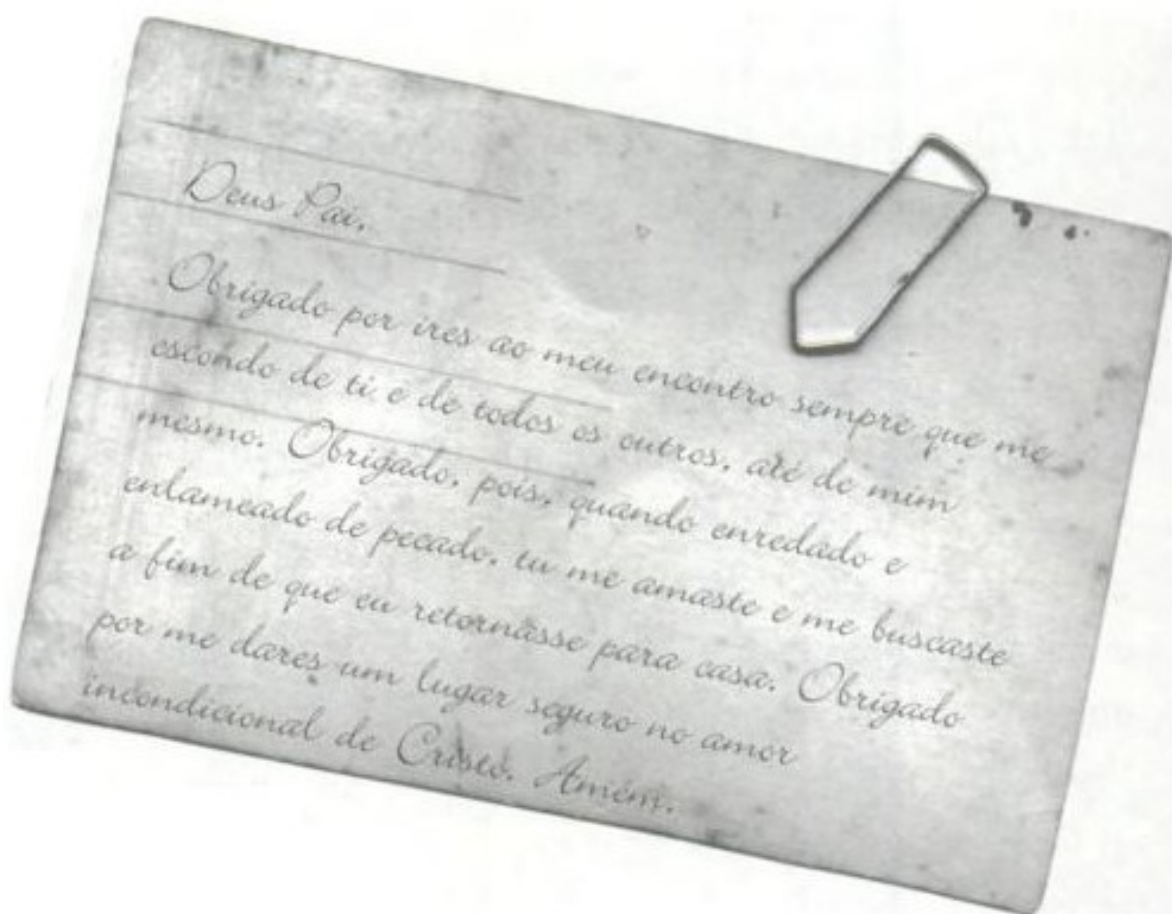 Deus Pai,
Obrigado por ires ao meu encontro sempre que me
escondo de ti e de todos os outros, até de mim
mesmo. Obrigado, pois, quando enredado e
enlameado de pecado, tu me amaste e me buscaste
a fim de que eu retornasse para casa. Obrigado
por me dares um lugar seguro no amor
incondicional de Cristo. Amém.